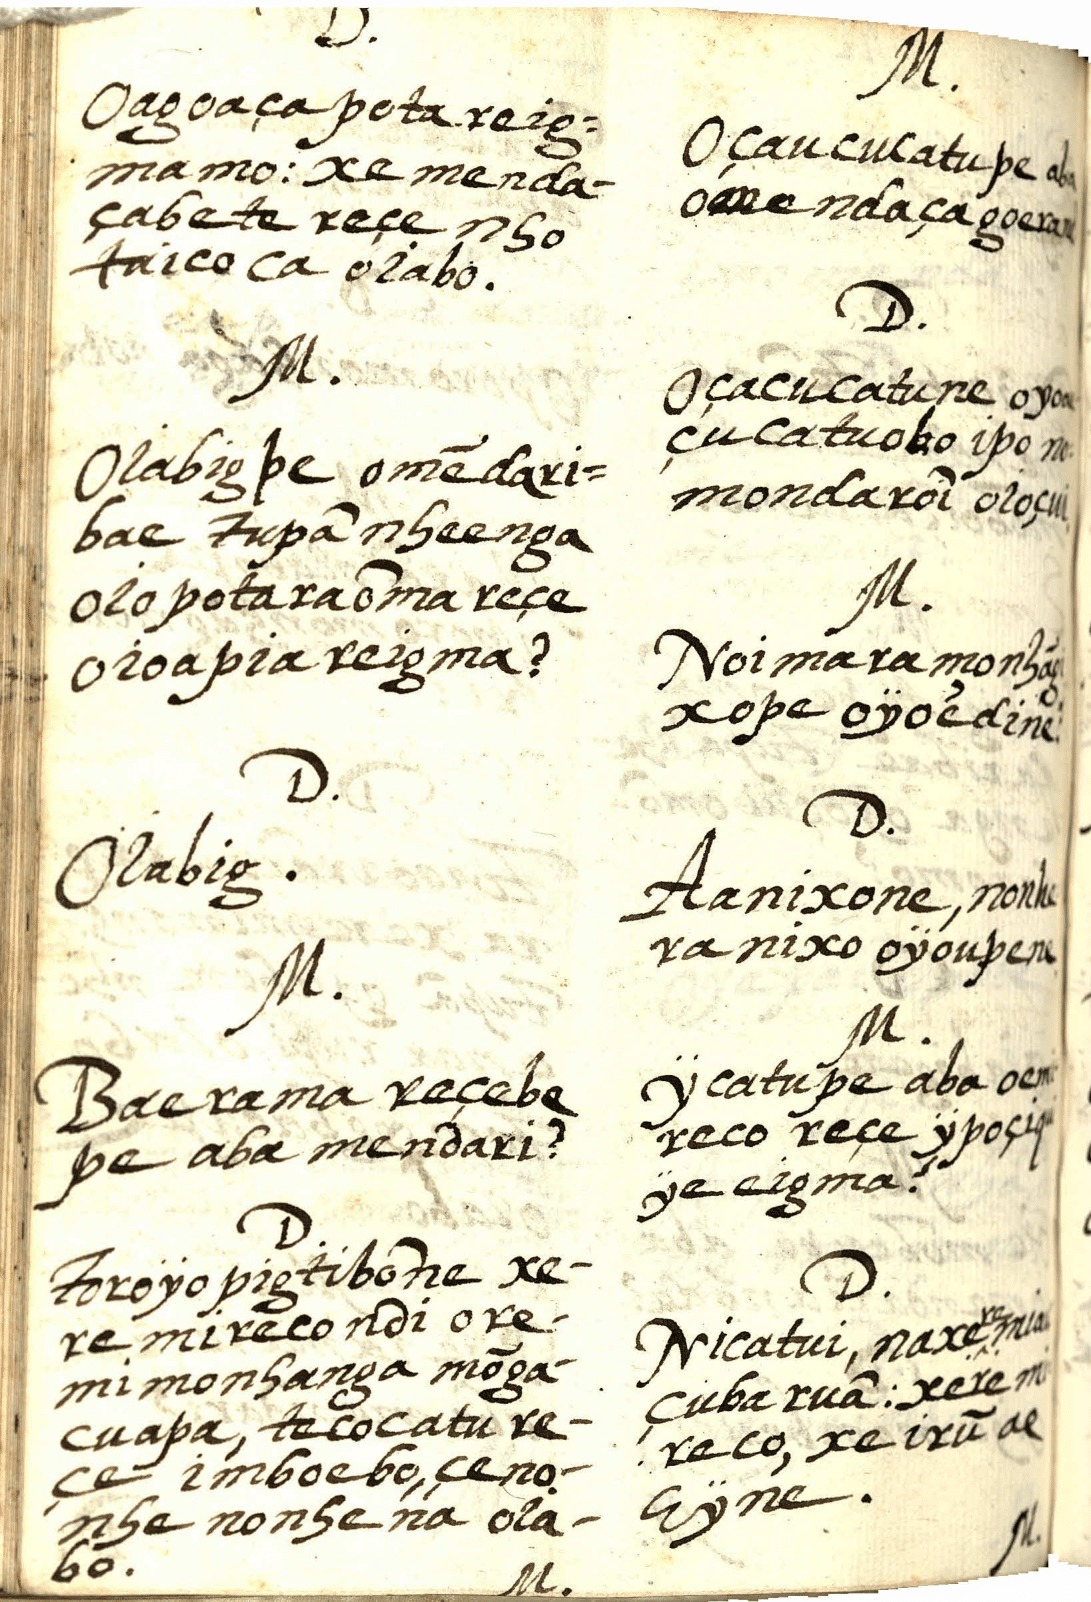 D.
Oagoaça pota reig=
mamo: xe menda-
çabete reçe nho
taico ca oiabo.
M.
Oiabig pe omẽdari=
bae Tupã nheenga
oiopotaraõma reçe
oioapiareigma?
D.
Oiabig.
M.
Baerama reçebe
pe aba mendari?
D
Toroÿo pigtibõne xe-
remireco ndi ore-
mimonhanga mõga-
cuapa, tecocatu re-
çe imboebo, çeno-
nhe nonhena oia-
bo.
M.
M.
Oçaucucatupe aba
omendaçagoera
D.
Oçacucatune
çucatuobo ipo
mondaroĩ oioçui
M.
Noimaramonhãg
xope oÿoẽdine:
D.
Aanixone, nonhe
ranixo oÿoupene
M.
ÿcatupe aba
reco reçe
ÿe eigma?
D.
Nicatui, naxeremia
çuba ruã: xere mi
reco, xe irũ ae
gÿne.
M.